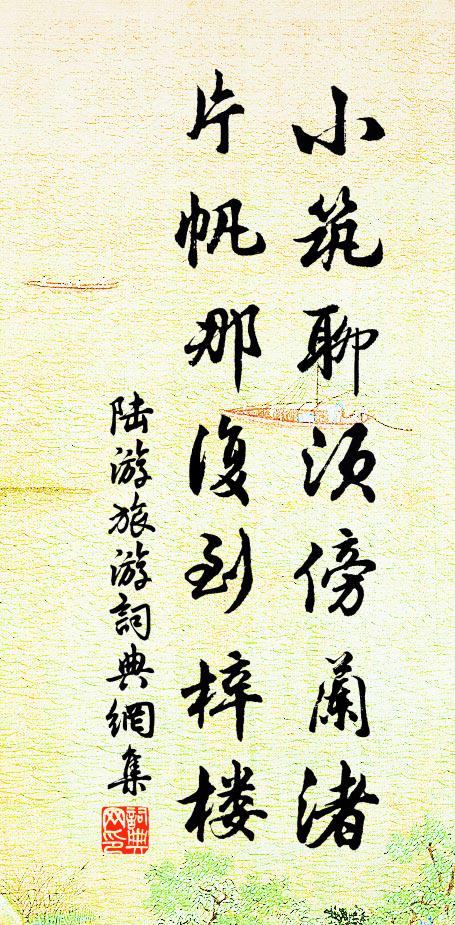 小筑聊须傍兰渚
片帆那复到梓楼
陆游旅游詞典網集
詞典网印